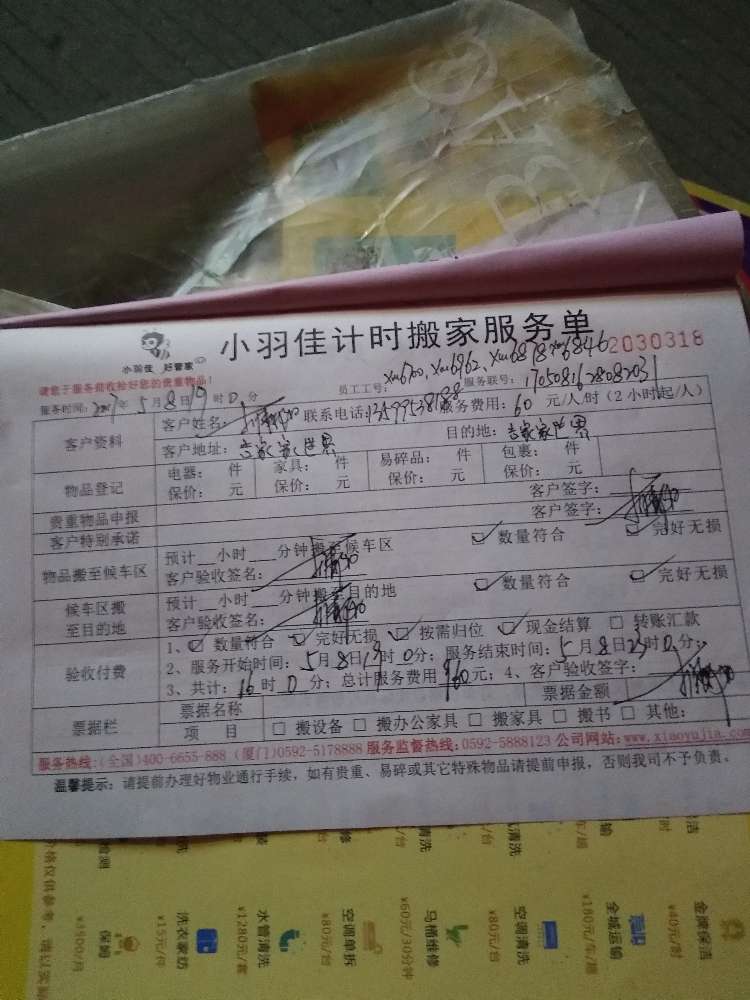 BAG
小羽佳 好管家
小羽佳计时搬家服务单
2030318
请您于服务前收拾好您的贵重物品！
员工工号：xm6700、xm6962、xm6878 xm6846 服务联号：1705081628082031
服务时间：2017年5月8日19时0分
客户资料 客户姓名： 联系电话：13599538188 服务费用：60元/人/时（2小时起/人）
客户地址：吉家家世界 目的地：吉家家世界
物品登记 电器： 件 家具： 件 易碎品： 件 包裹： 件
保价： 元 保价： 元 保价： 元 保价： 元
贵重物品申报 客户签字：
客户特别承诺 客户签字：
物品搬至候车区 预计__小时__分钟搬至候车区 ☑ 数量符合 ☑ 完好无损
客户验收签名：
候车区搬至目的地 预计__小时__分钟搬至目的地 ☑ 数量符合 ☑ 完好无损
客户验收签名：
验收付费 1、☑ 数量符合 ☑ 完好无损 ☑ 按需归位 ☑ 现金结算 □ 转账汇款
2、服务开始时间：5月8日19时0分；服务结束时间：5月8日23时0分；
3、共计：16时0分；总计服务费用960元；4、客户验收签字：
票据栏 票据名称 票据金额
项 目 □ 搬设备 □ 搬办公家具 □ 搬家具 □ 搬书 □ 其他：
服务热线：(全国)400-6655-888 (厦门)0592-5178888 服务监督热线：0592-5888123 公司网站：www.xiaoyujia.com
温馨提示：请提前办理好物业通行手续，如有贵重、易碎或其它特殊物品请提前申报，否则我司不予负责。
金牌保洁 ¥40元/时
全城运输 ¥180元/车/趟
空调清洗 ¥80元/台
马桶维修 ¥60元/30分钟
空调单拆 ¥80元/台
水管清洗 ¥1280元/套
洗衣家纺 ¥15元/件
保姆 ¥3500/月